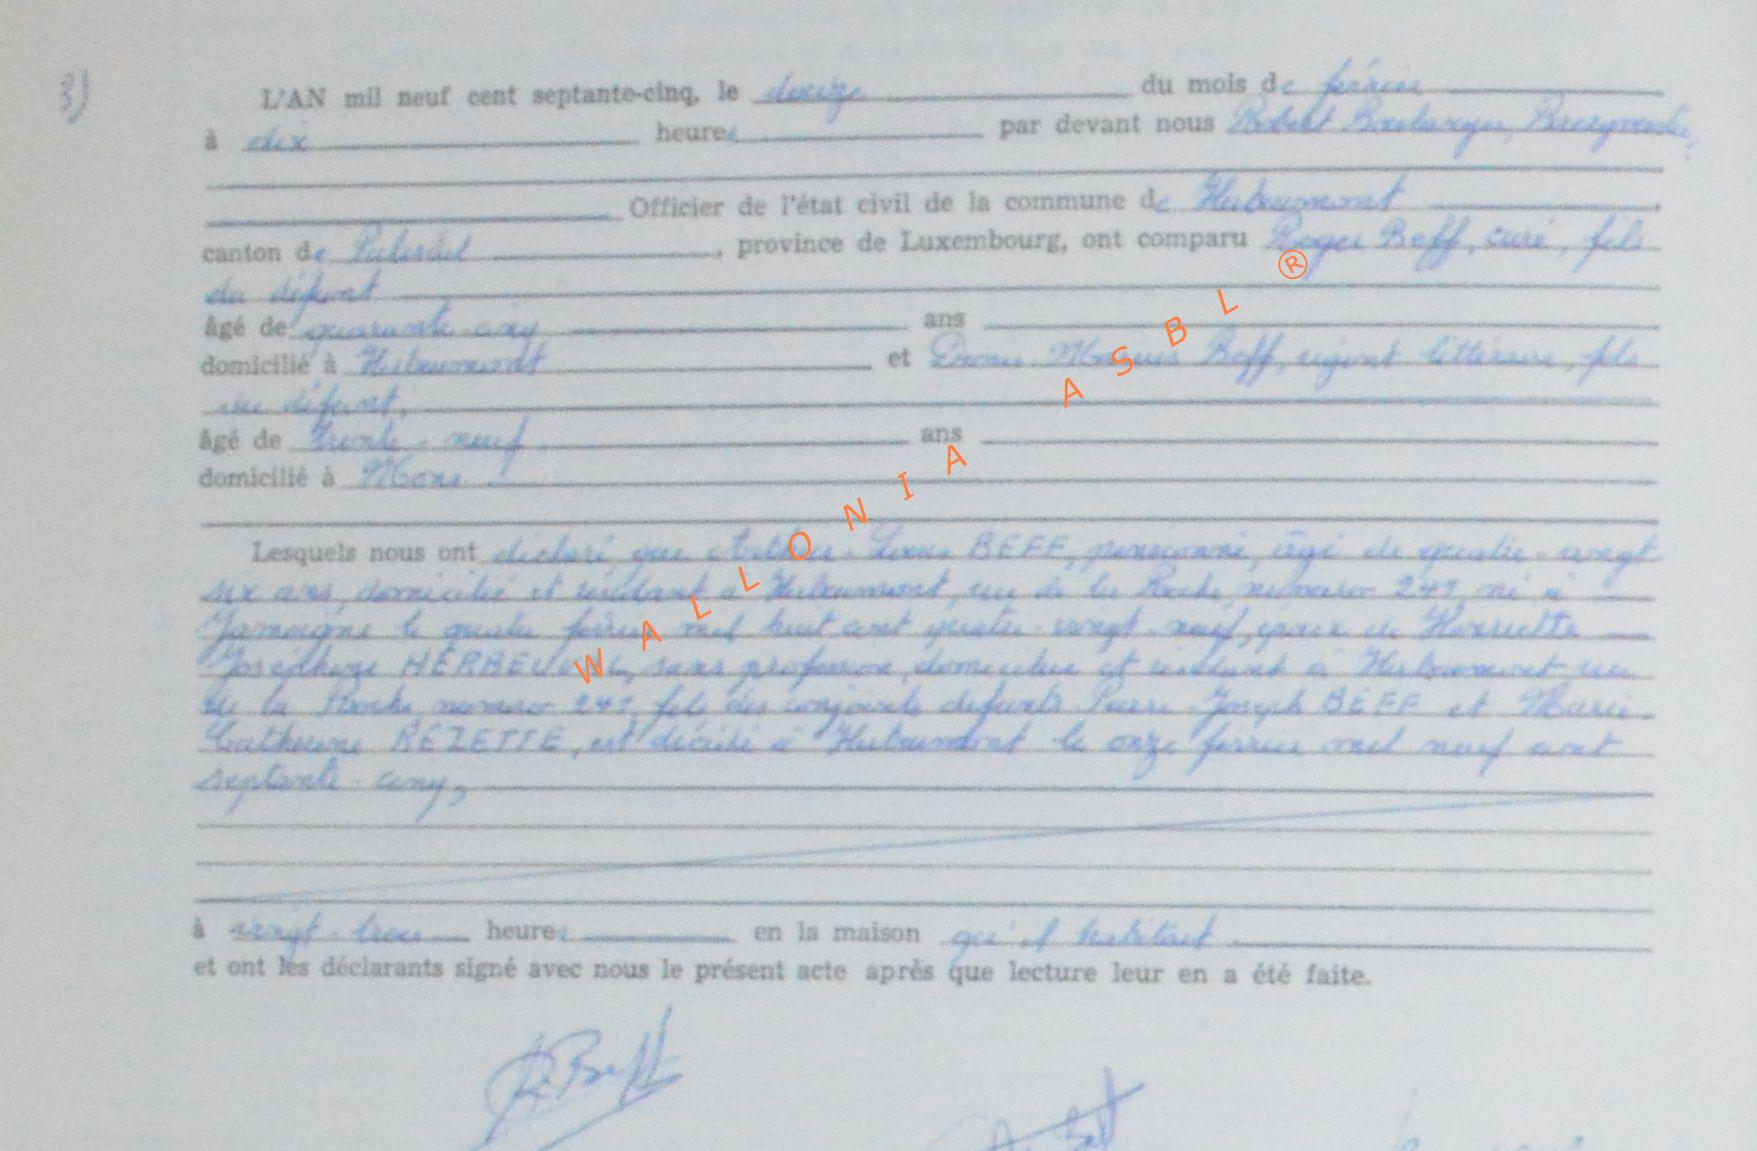 3)
L'AN mil neuf cent septante-cinq, le douze du mois de février
à dix heures par devant nous Robert Boulanger, Bourgmestre,
Officier de l'état civil de la commune de Herbeumont
canton de Paliseul, province de Luxembourg, ont comparu Roger Beff, curé, fils
du défunt
âgé de quarante cinq ans
domicilié à Herbeumont et Beff, régent littéraire, fils
du défunt,
âgé de trente-neuf ans
domicilié à Mons
Lesquels nous ont déclaré que Arthur-Louis BEFF, pensionné, âgé de quatre-vingt
six ans, domicilié et résidant à Herbeumont, rue de la Roche, numéro 247, né à
Jamoigne le quatre février mil huit cent quatre-vingt-neuf, époux de Henriette
Joséphine HERBEUVAL, sans profession, domiciliée et résidant à Herbeumont rue
de la Roche numéro 247, fils des conjoints défunts Pierre Joseph BEFF et Marie
Catherine REZETTE, est décédé à Herbeumont le onze février mil neuf cent
septante-cinq,
à vingt-trois heures en la maison qu'il habitait
et ont les déclarants signé avec nous le présent acte après que lecture leur en a été faite.
R Beff
WALLONIA ASBL ®